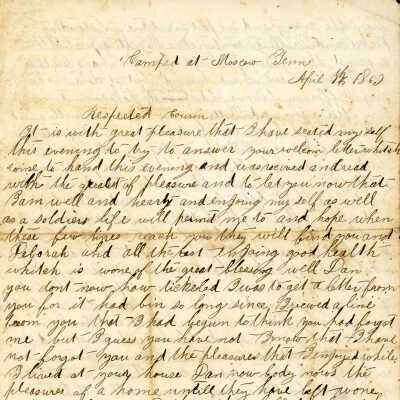 Camped at Moscow Tenn
April 1863
Respected Cousin
It is with great pleasure that I have seated my self
this evening to try to answer your welcom letter whitch
come to hand this evening and was received and read
with the gratest of pleasure and to let you now that
I am well and hearty and enjoying my self as well
as a soldiers life will permit me to and hope when
these few lines reach you they will find you and
Deborah and all the rest enjoying good health
whitch is wone of the great blessing well Dan
you dont now how tickeled I was to get a letter from
you for it had bin so long since I recived a line
from you that I had begun to think you had forgot
me but I guess you have not I now that I have
not forgot you and the pleasures that I enjoyed while
I lived at your house Dan now body nows the
pleasures of a home untill they have left wone